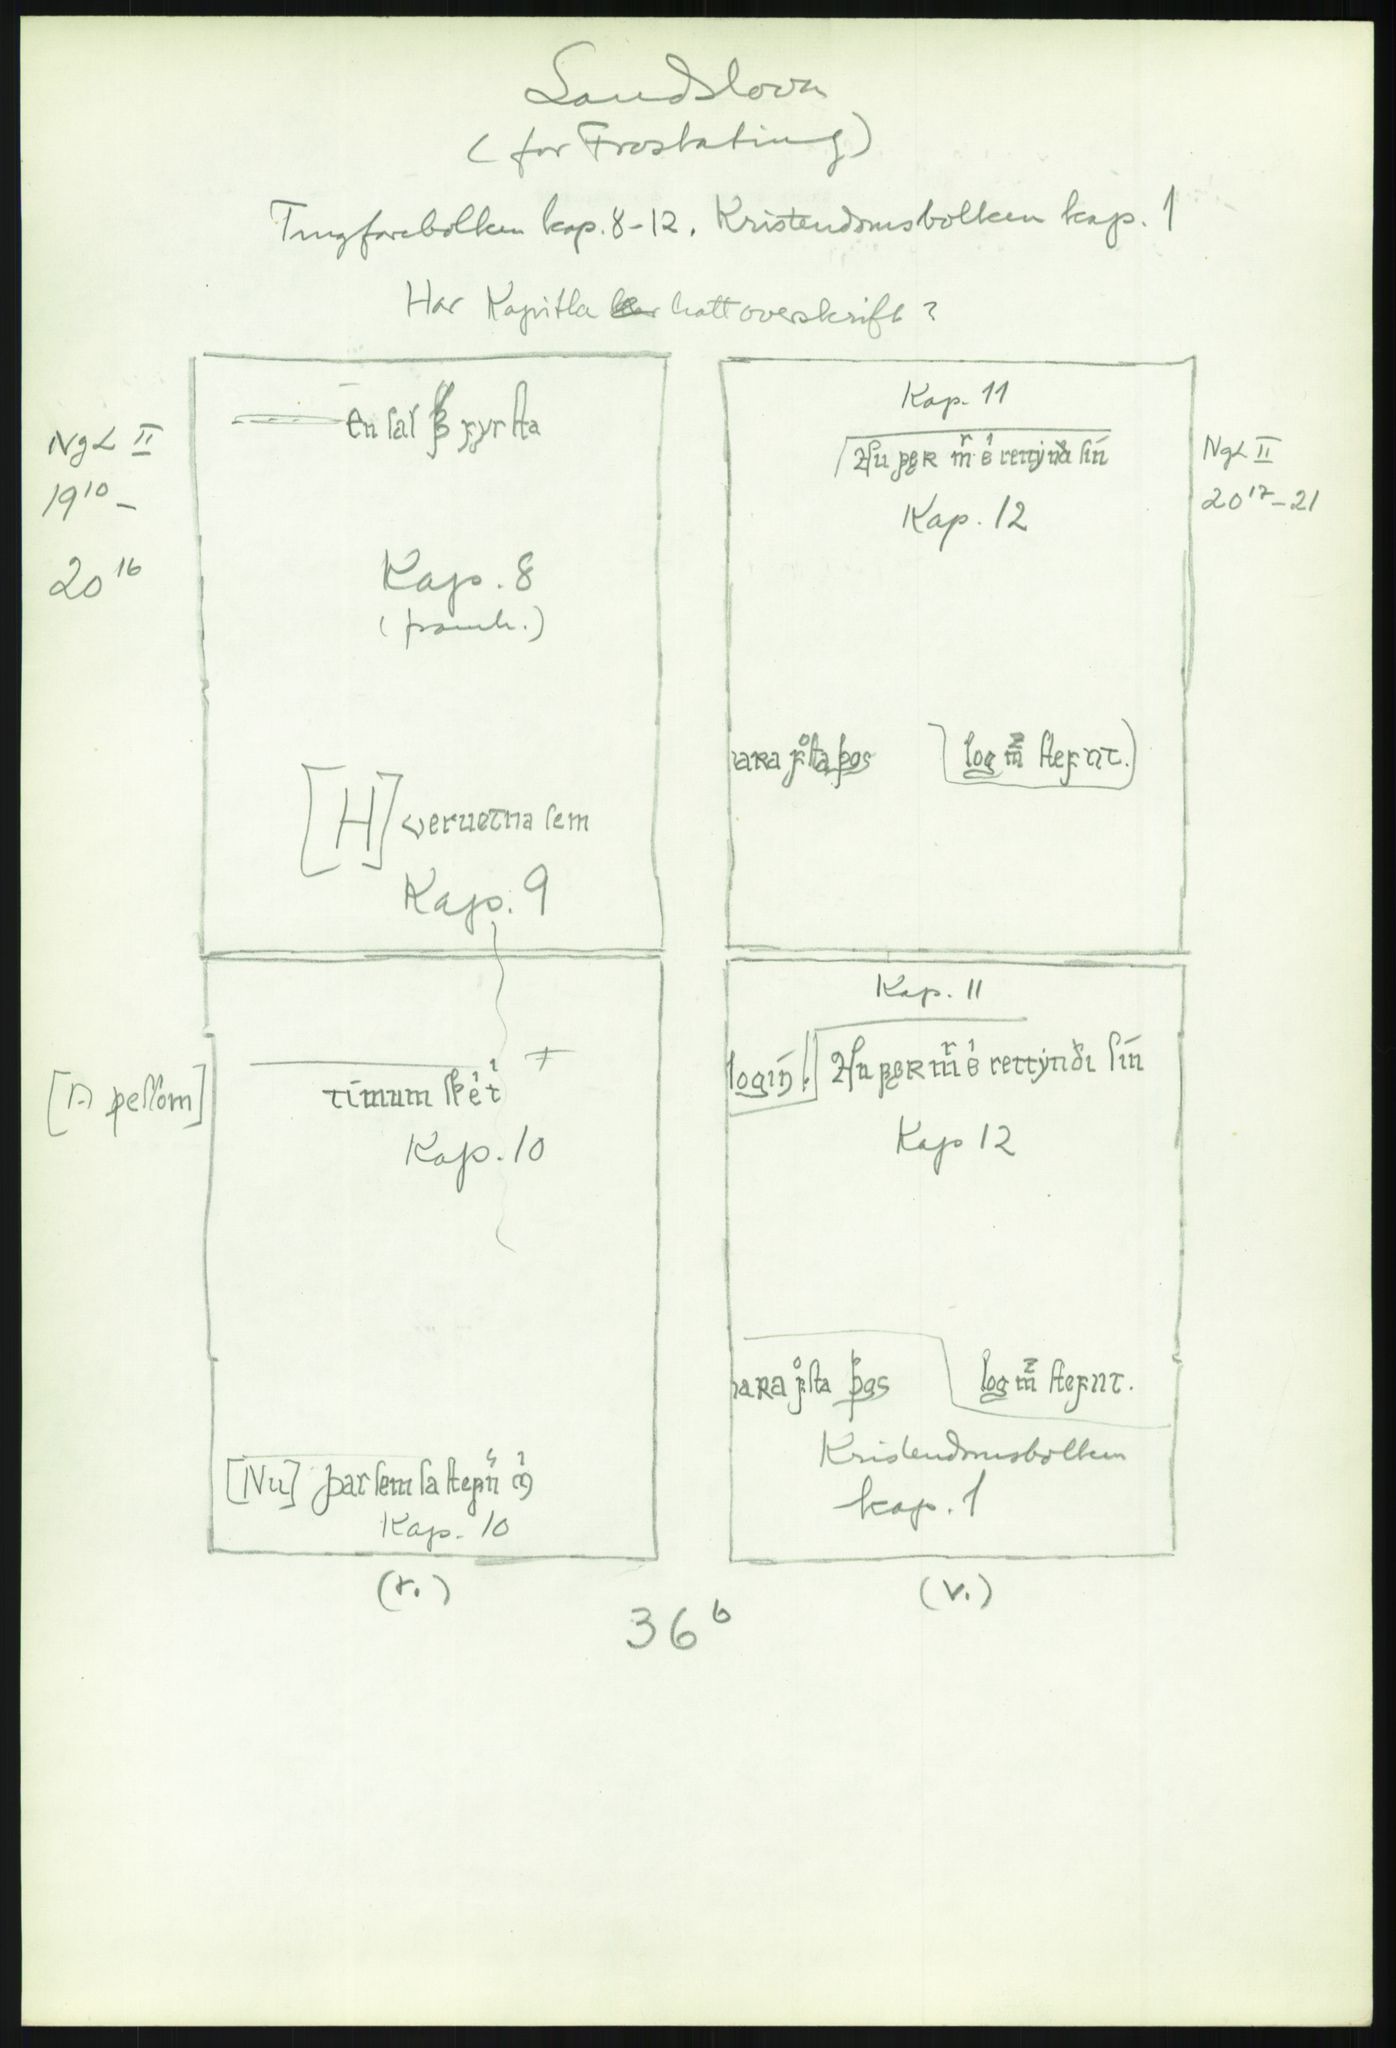 Landslova
(for Frostating)
Tingfarebolken kap. 8-12. Kristendomsbolken kap. 1
Har Kapitla hatt overskrift?
NgL II
19¹⁰ –
20¹⁶
en ſal fyrſta
Kap. 8
[H] veruetna ſem
Kap. 9
[A þeſſom]
timum ſk
Kap. 10
[Nu] þar ſem ſa ſtefn
Kap. 10
(r.)
Kap. 11
Nu rettynda ſín
Kap. 12
NgL II
20¹⁷-21
log ſtefnt.
Kap. 11
login. Nu rettyndi ſín
Kap 12
log ſtefnt.
Kristendomsbolken
kap. 1
(v.)
36ᵇ